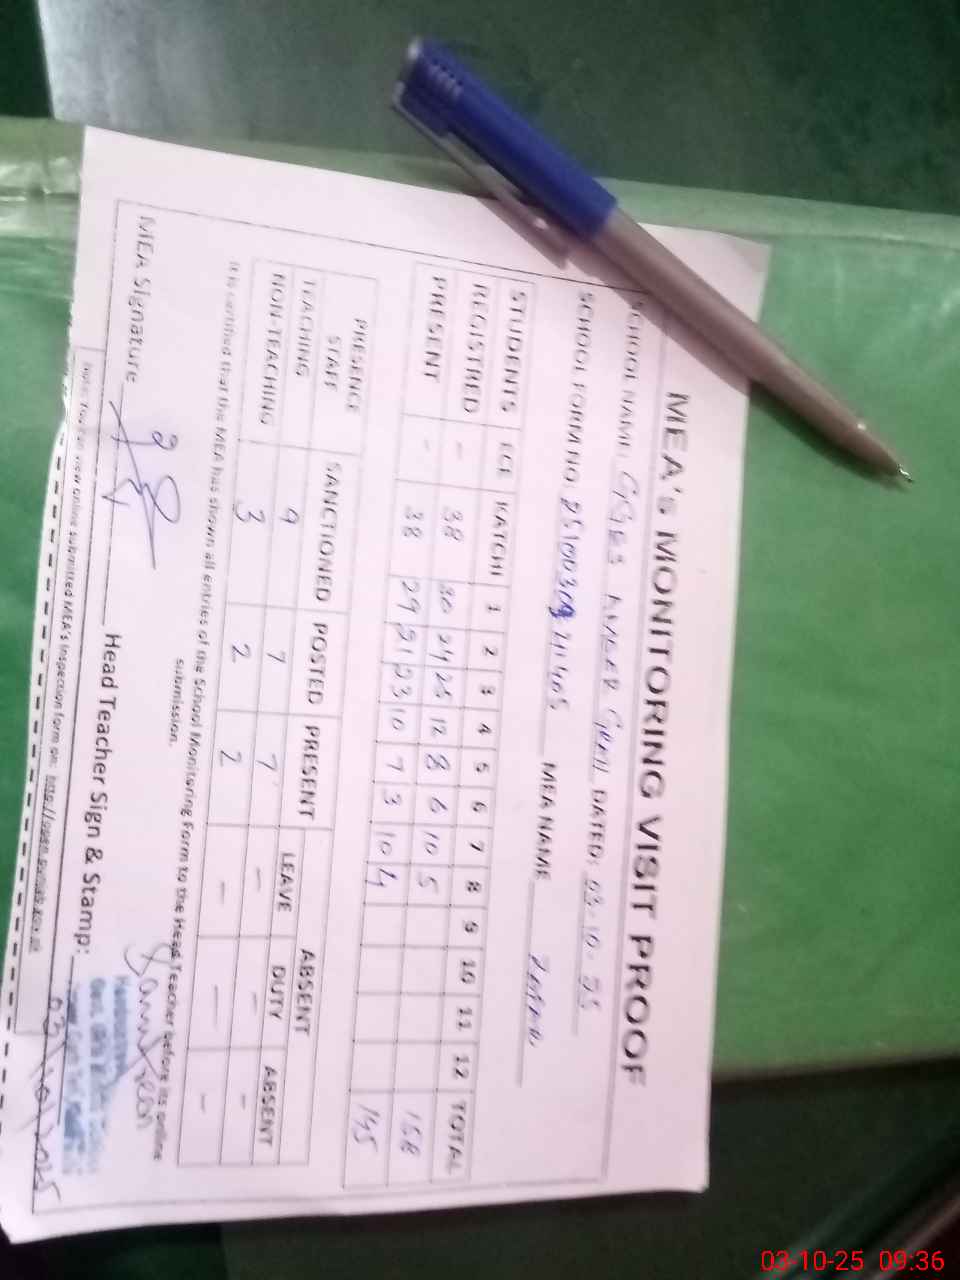 MEA's MONITORING VISIT PROOF
SCHOOL NAME: GGES DATED: 03-10-25
SCHOOL FORM NO MEA NAME
STUDENTS ECE KATCHI 1 2 3 4 5 6 7 8 9 10 11 12 TOTAL
REGISTRED - 38 30 24 25 12 8 6 10 5 158
PRESENT - 38 29 21 23 10 7 3 10 4 145
PRESENCE STAFF SANCTIONED POSTED PRESENT ABSENT
LEAVE DUTY ABSENT
TEACHING 9 7 7 - - -
NON-TEACHING 3 2 2 - - -
It is certified that the MEA has shown all entries of the School Monitoring Form to the Head Teacher before its online
submission.
MEA Signature Head Teacher Sign & Stamp:
03/10/2025
Note: You can view online submitted MEA's inspection form on: http://open.punjab.gov.pk
03-10-25 09:36